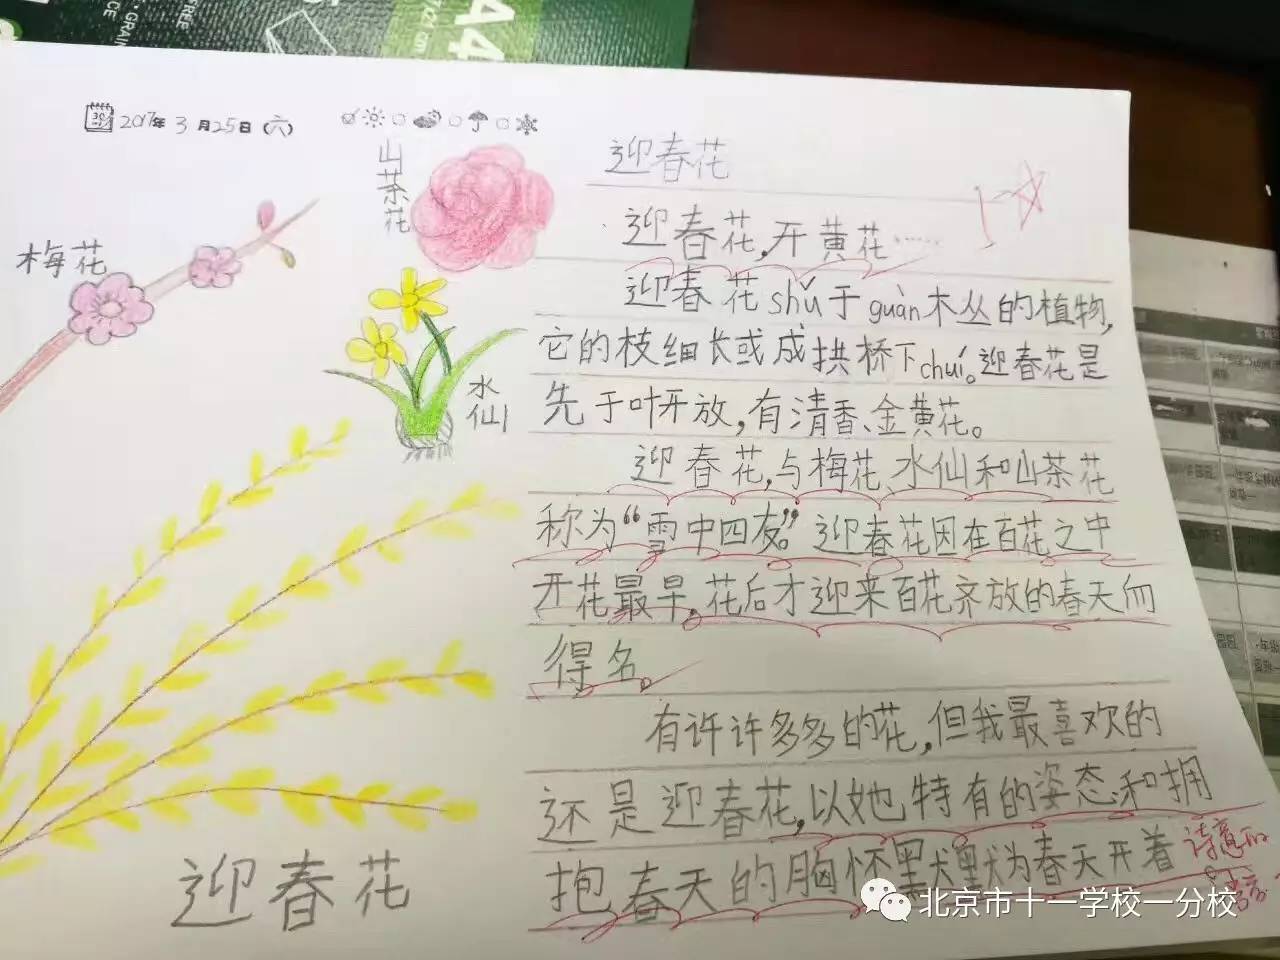 2017年3月25日(六)
山茶花
梅花
水仙
迎春花
迎春花
迎春花,开黄花……
迎春花shǔ于guàn木丛的植物,
它的枝细长或成拱桥下chuí。迎春花是
先于叶开放,有清香、金黄花。
迎春花,与梅花、水仙和山茶花
称为“雪中四友”。迎春花因在百花之中
开花最早,花后才迎来百花齐放的春天而
得名。
有许许多多的花,但我最喜欢的
还是迎春花,以她特有的姿态和拥
抱春天的胸怀默默为春天开着
诗意的
北京市十一学校一分校
A4